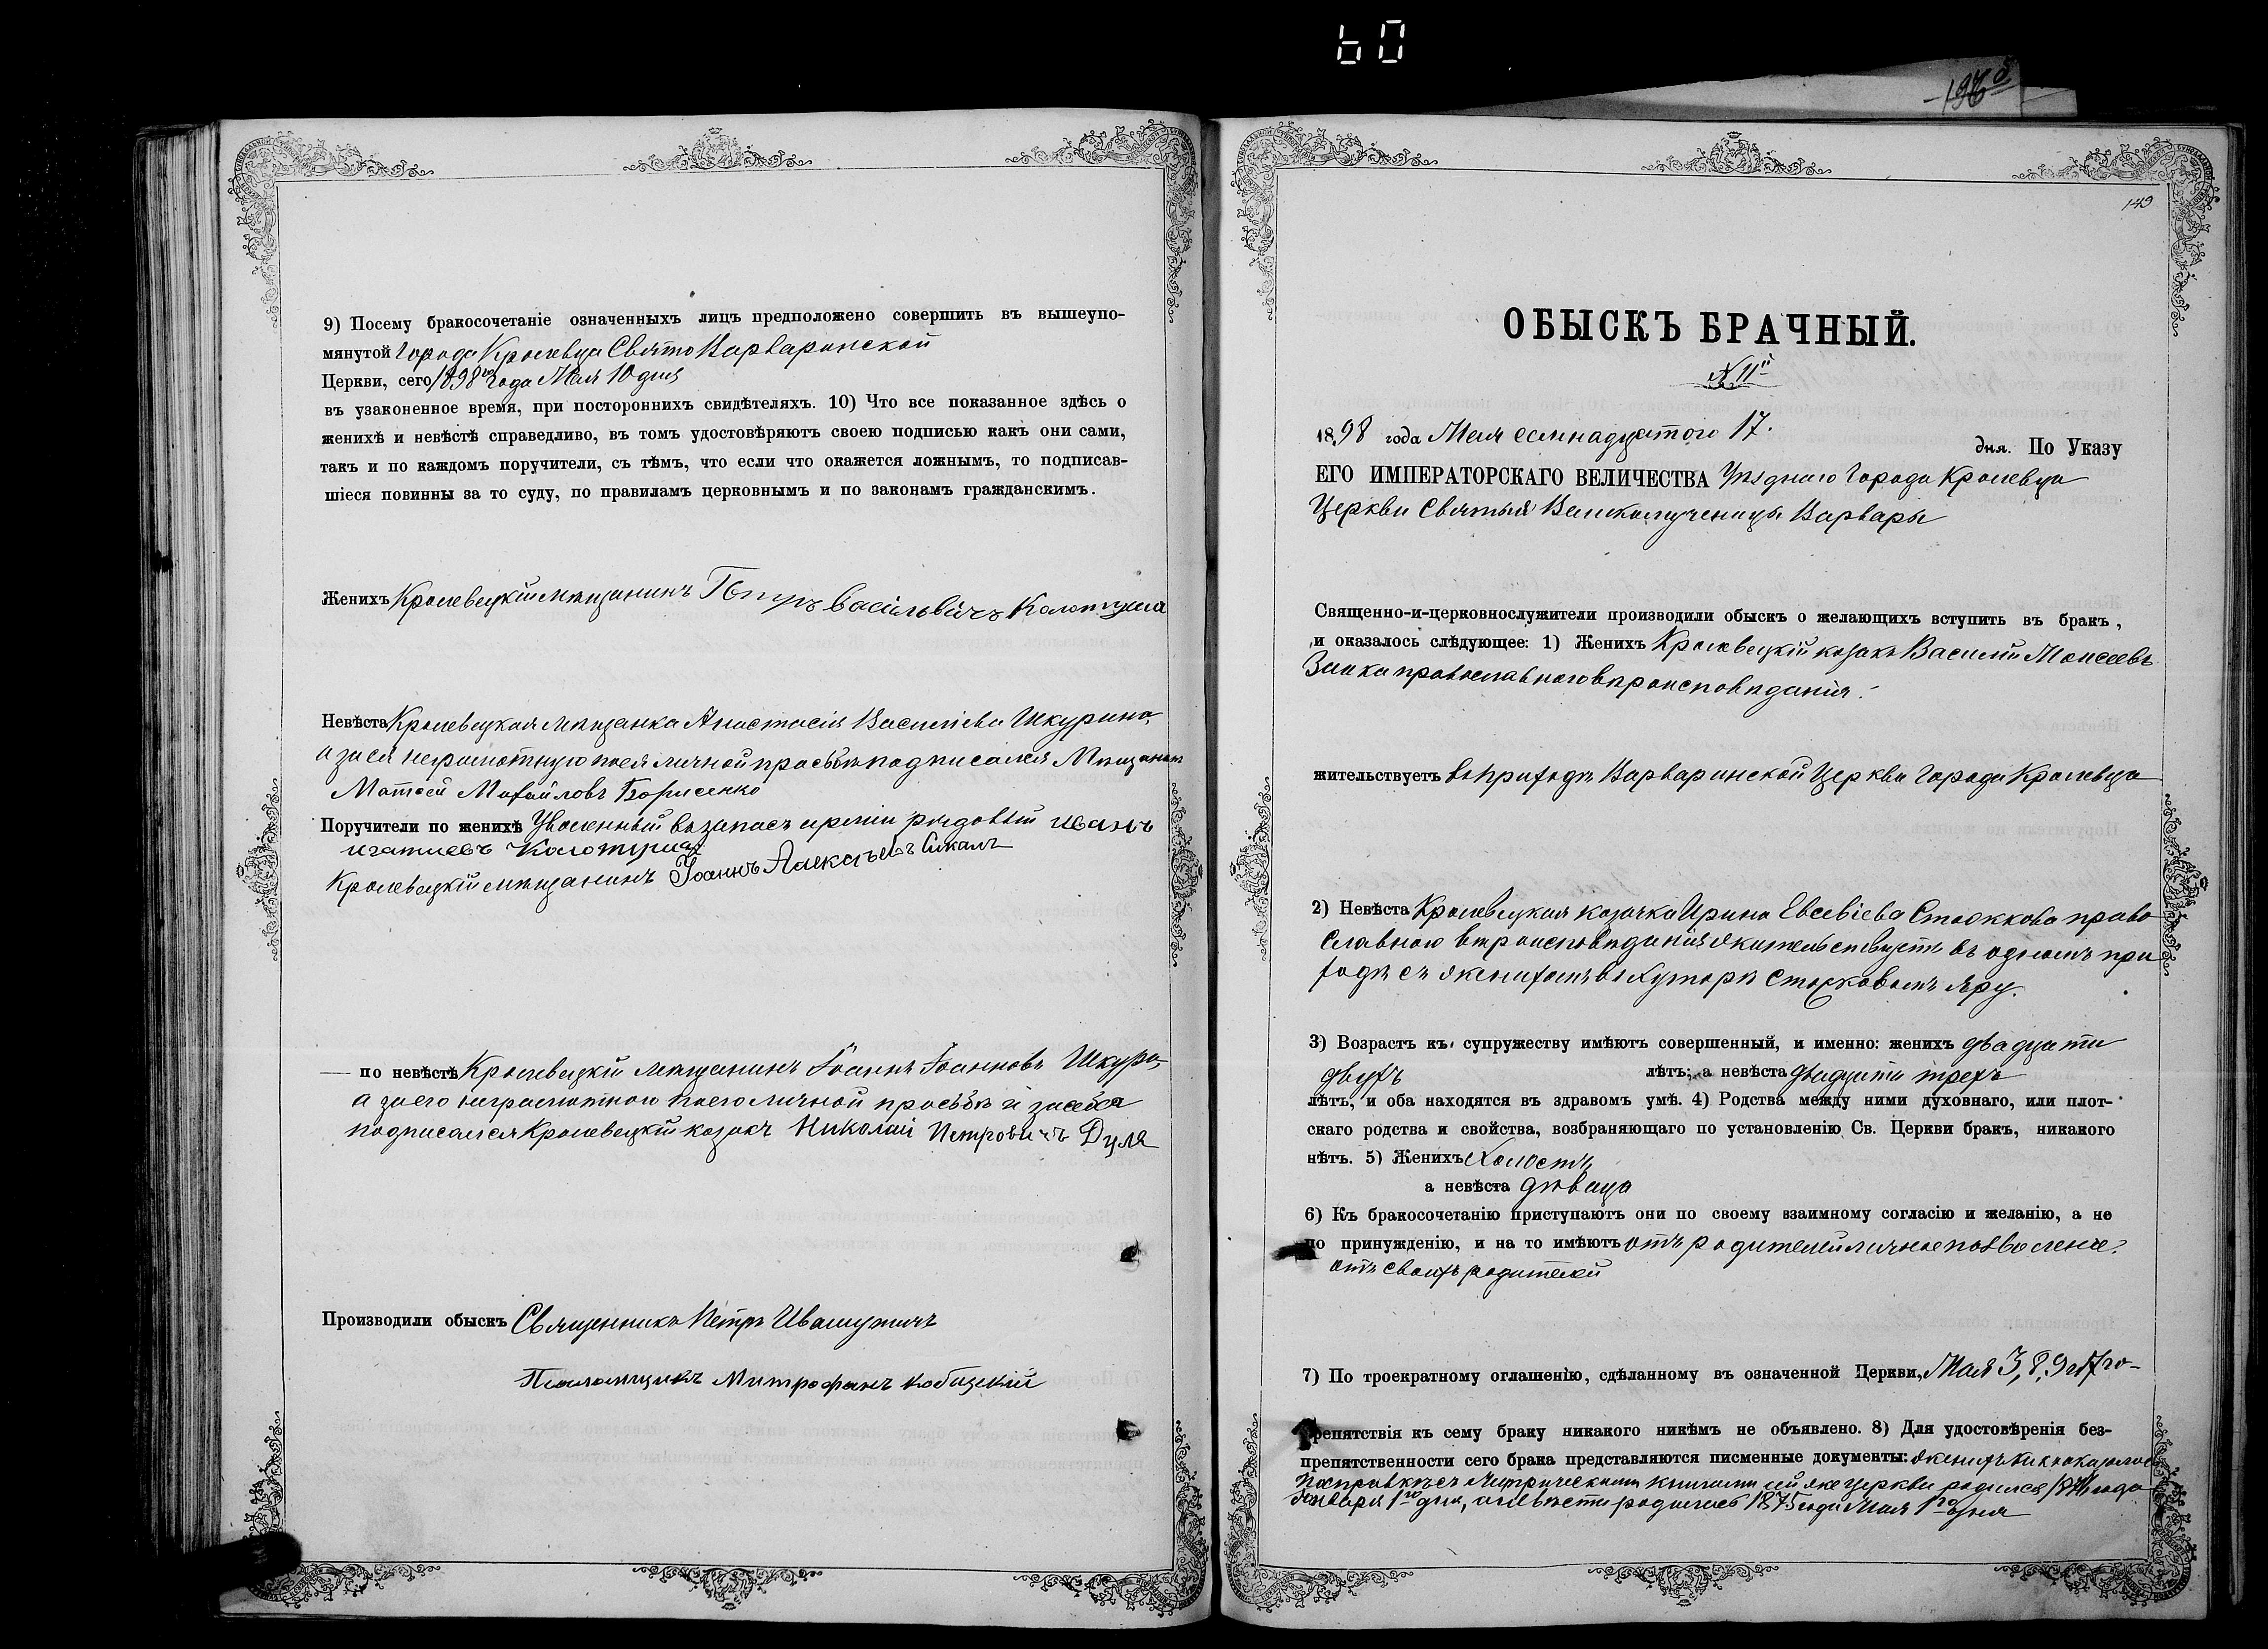 60
149
9) Посему бракосочетаніе означенныхъ лицъ предположено совершить въ вышеупо-
мянутой Города Кролевца Свято Варваринской
Церкви, сего 1898го года Мая 10 дня
въ узаконенное время, при постороннихъ свидѣтеляхъ. 10) Что все показанное здѣсь о
женихѣ и невѣстѣ справедливо, въ томъ удостовѣряютъ своею подписью какъ они сами,
такъ и по каждомъ поручители, съ тѣмъ, что если что окажется ложнымъ, то подписав-
шіеся повинны за то суду, по правиламъ церковнымъ и по законамъ гражданскимъ.
Женихъ Кролевецкій мѣщанинъ Петръ Васильвичъ Колотуша
Невѣста Кролевецкая мѣщанка Анастасія Василіева Шкурина,
а за ея неграмотную по ея личной просьбѣ подписался Мѣщанин
Матѳей Михайловъ Борисенко
Поручители по женихѣ Уволенный въ запасъ арміи рядовый Иванъ
Игатиевъ Колотуша
Кролевецкій мѣщанинъ Іоаннъ Алексѣевъ
по невѣстѣ Кролевецкій мѣщанинъ Іоаннъ Іоанновъ Шкура,
а за его неграмотного по его личной просьбѣ и за себя
подписался Кролевецкій козакъ Николай Петровичъ Дуля
Производили обыскъ Священникъ Петръ
Псаломщикъ Митрофанъ
ОБЫСКЪ БРАЧНЫЙ.
№ 11й
1898 года Мая семнадцатого 17. дня. По Указу
ЕГО ИМПЕРАТОРСКАГО ВЕЛИЧЕСТВА Уѣзднаго Города Кролевца
Церкви Святыя Великомученицы Варвары
Священно-и-церковнослужители производили обыскъ о желающихъ вступить въ бракъ,
и оказалось слѣдующее: 1) Женихъ Кролевецкій козакъ Василій Моисеевъ
Заика православного вѣроисповѣданія.
жительствуетъ въ приходѣ Варваринской Церкви Города Кролевца
2) Невѣста Кролевецкая козачка Ирина Евсевіева право
славного вѣроисповѣданія жительствуетъ въ одномъ при
ходѣ съ женихомъ въ Хуторѣ Яру.
3) Возрастъ къ супружеству имѣютъ совершенный, и именно: женихъ двадцати
двухъ лѣтъ; а невѣста двадцати трехъ
лѣтъ, и оба находятся въ здравомъ умѣ. 4) Родства между ними духовнаго, или плот-
скаго родства и свойства, возбраняющаго по установленію Св. Церкви бракъ, никакого
нѣтъ. 5) Женихъ Холостъ,
а невѣста дѣвица
6) Къ бракосочетанію приступаютъ они по своему взаимному согласію и желанію, а не
по принужденію, и на то имѣютъ отъ родителей личное позволеніе
отъ своихъ родителей
7) По троекратному оглашенію, сдѣланному въ означенной Церкви, Мая 3, 8, 9 и 17го
препятствія къ сему браку никакого никѣмъ не объявлено. 8) Для удостовѣренія без-
препятственности сего брака представляются писменные документы: женихъ какъ оказалось
по справкѣ съ Метрическими книгами сей же церкви родился года
Января 1го дня, а невѣста родилась 1875 года Мая 1го дня